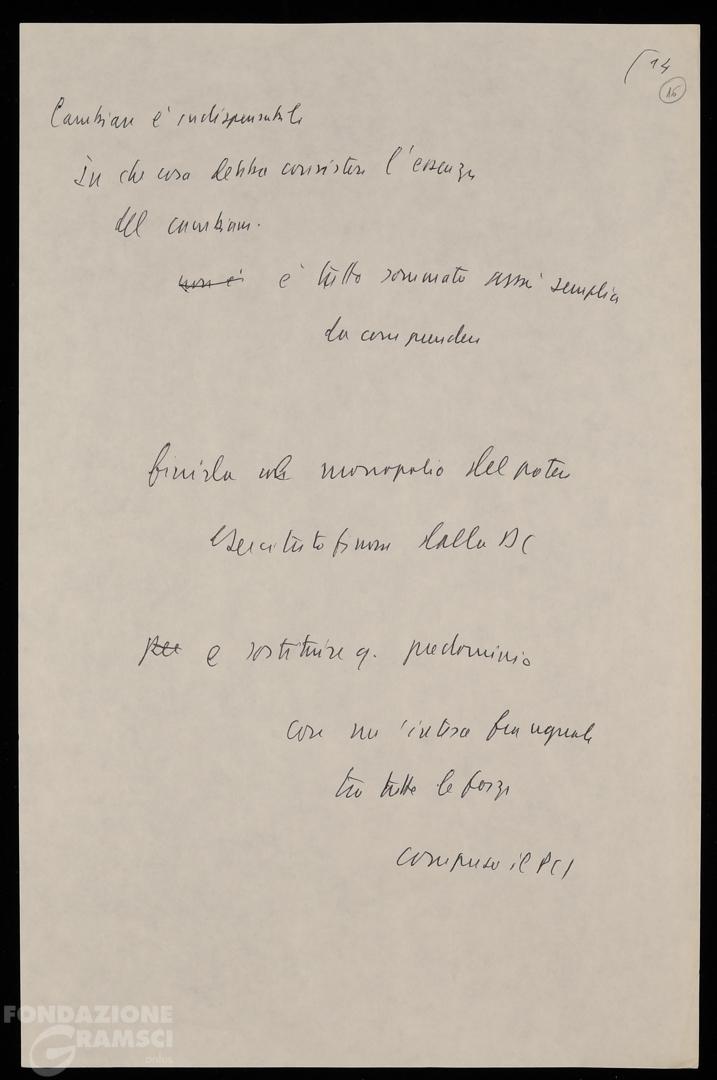 14
15
Cambiare è indispensabile
In che cosa debba consistere l'essenza
del cambiare.
non è è tutto sommato assai semplice
da comprendere
finirla col monopolio del potere
esercitato finora dalla DC
per e sostituire q. predominio
con un'intesa fra uguali
tra tutte le forze
compreso il PCI
FONDAZIONE
GRAMSCI
onlus